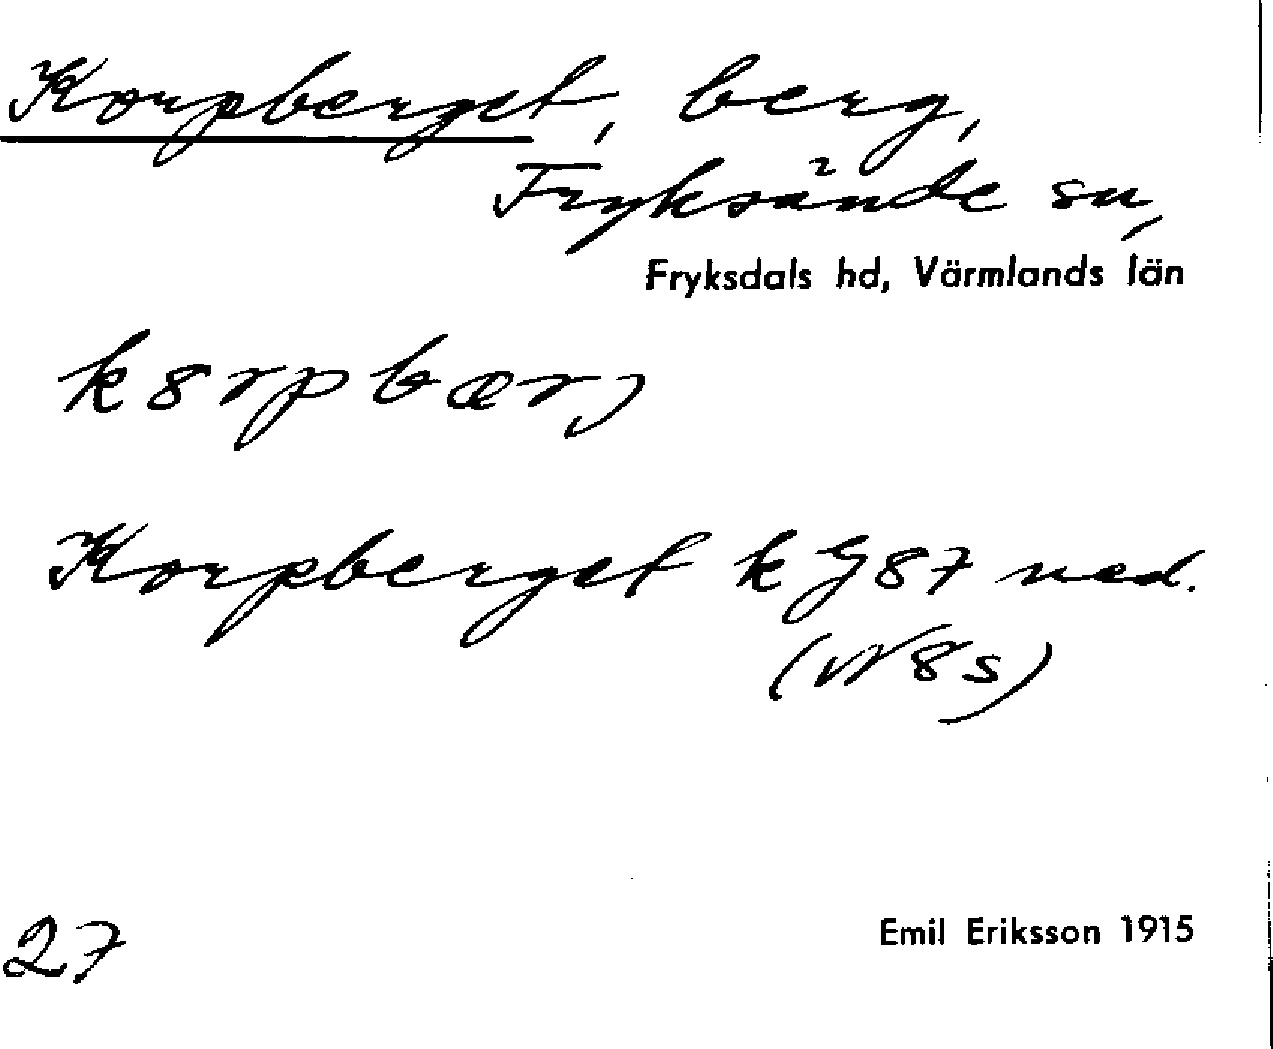 Korpberget, berg,
Fryksände sn,
Fryksdals hd, Värmlands län
k8rpbærj
Korpberget k G87 ned.
(N8s)
27
Emil Eriksson 1915